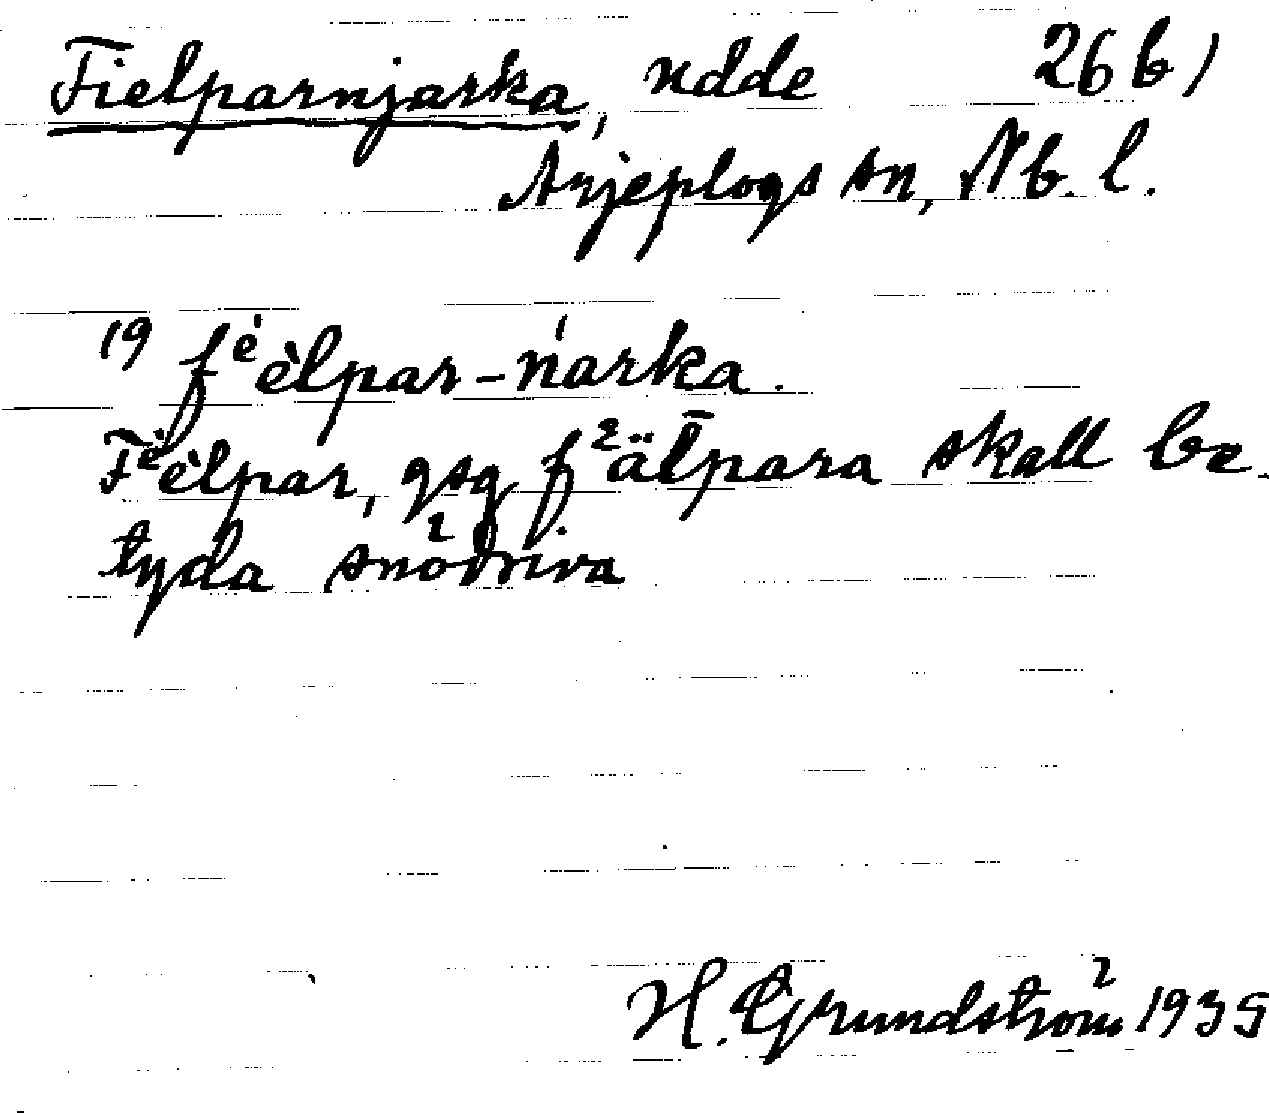 Fielparnjarka, udde 26 b)
Arjeplogs sn, Nb. l.
19 fᵉ̀èlpar-ńarka.
Fᵉ̀èlpar, gsg fᵉäl̄para skall be-
tyda snödriva
H. Grundström 1935